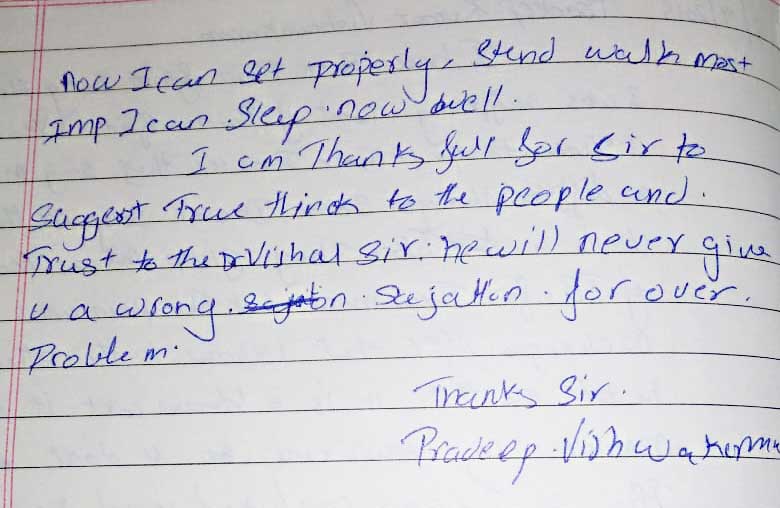 now I can set properly, Stend walk most
Imp I can Sleep now well.
I am Thanks full for Sir to
Suggest True thinds to the people and.
Trust to the Dr Vishal Sir. he will never give
u a wrong. Sejation. for over.
Problem.
Thanks Sir.
Pradeep. Vishwakerma